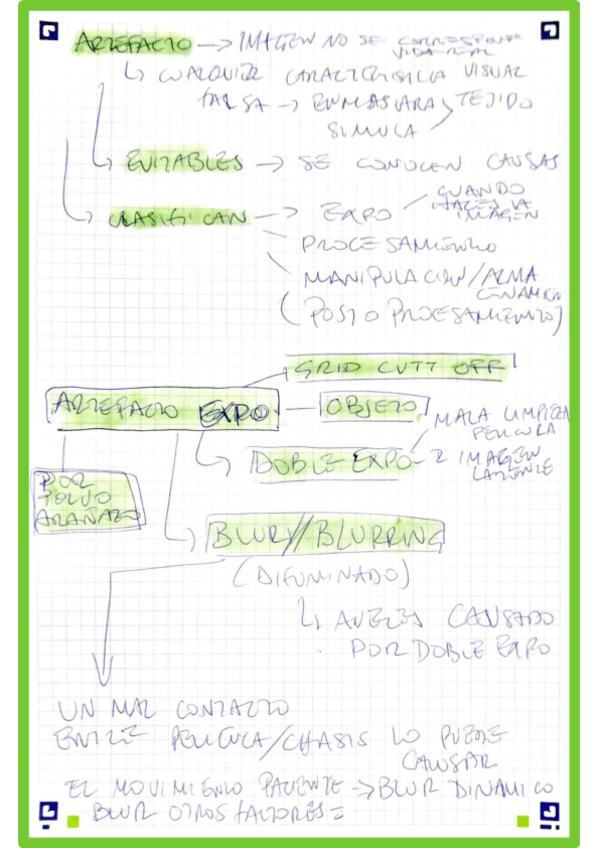 ARTEFACTO → IMAGEN NO SE CORRESPONDE
VIDA REAL
↳ CUALQUIER CARACTERISTICA VISUAL
FALSA → ENMASCARA TEJIDO
SIMULA
EVITABLES → SE CONOCEN CAUSAS
CLASIFICAN → EXPO CUANDO
HACES LA
IMAGEN
PROCESAMIENTO
MANIPULACION/ALMA
CENAMIEN
(POST O PROCESAMIENTO)
GRID CUTT OFF
ARTEFACTO EXPO — OBJETO
MALA LIMPIEZA
PELICULA
DOBLE EXPO - 2 IMAGEN
LATENTE
POR
POLVO
ARAÑAZO
BLUR//BLURRING
(DIFUMINADO)
↳ A VECES CAUSADO
POR DOBLE EXPO
UN MAL CONTACTO
ENTRE PELICULA/CHASIS LO PUEDE
CAUSAR
EL MOVIMIENTO PACIENTE → BLUR DINAMICO
BLUR OTROS FACTORES =